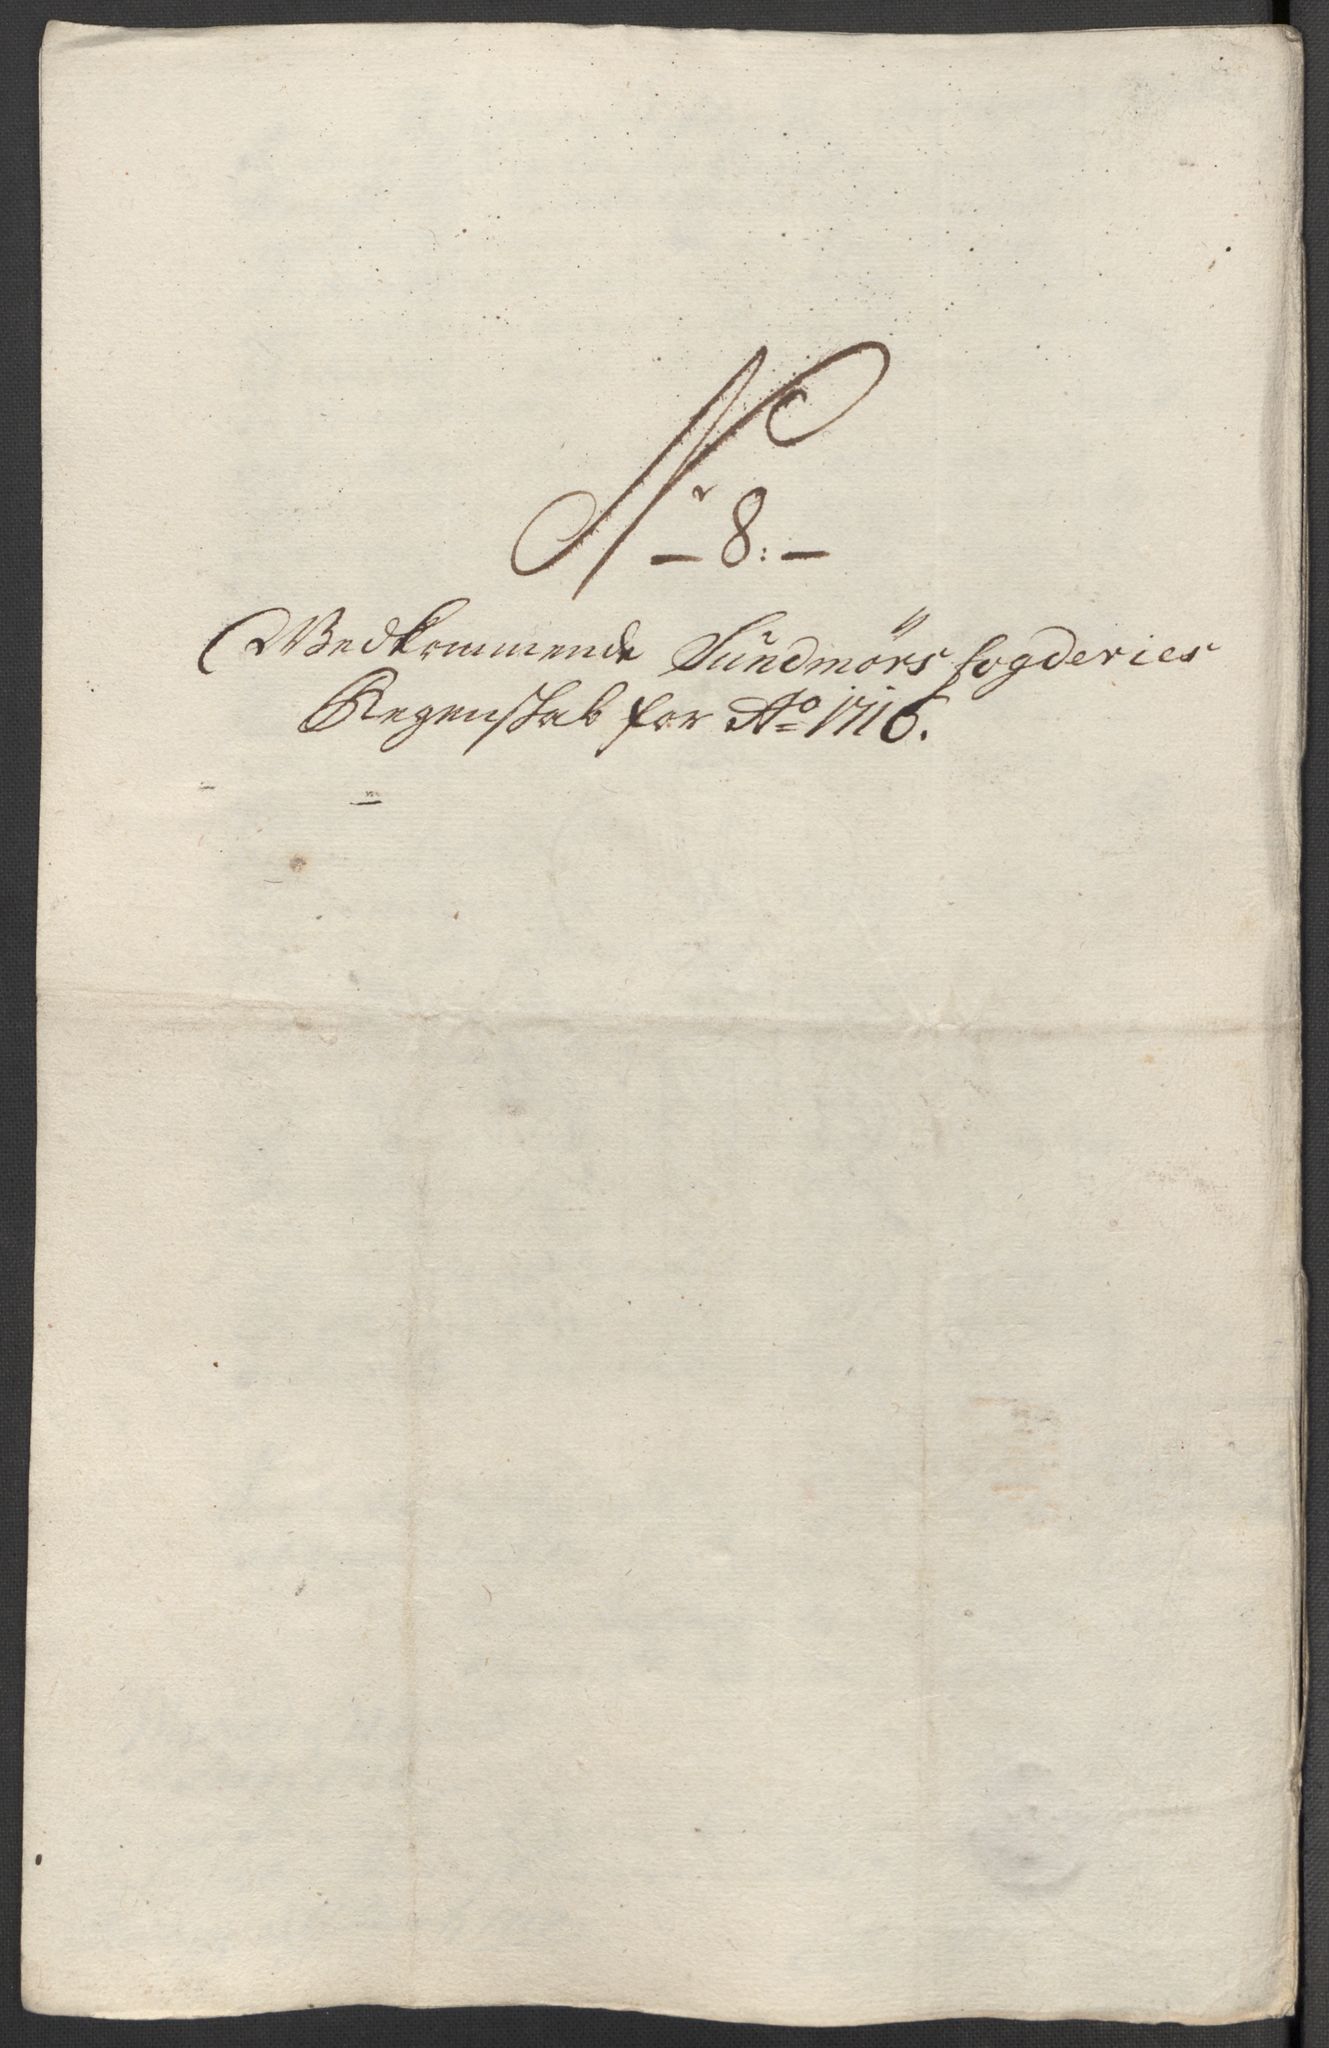 Nr 8:
Wedkommende Sundmörs fogderies
Regenskab for Ao 1716.